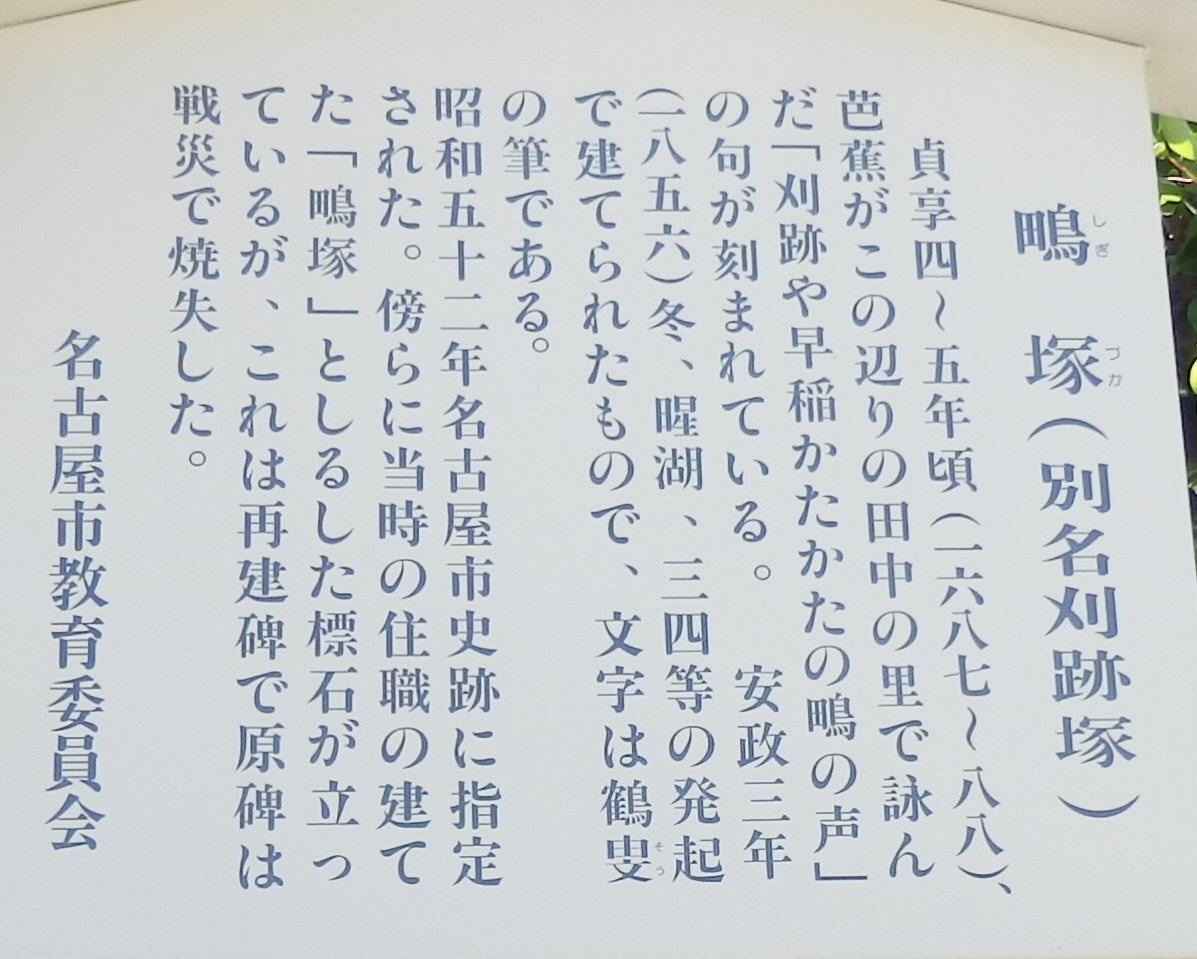 鴫塚(別名刈跡塚)
しぎ
づか
貞享四~五年頃(一六八七~八八)、
芭蕉がこの辺りの田中の里で詠ん
だ「刈跡や早稲かたかたの鴫の声」
の句が刻まれている。 安政三年
(一八五六)冬、暒湖、三四等の発起
で建てられたもので、文字は鶴叟
そう
の筆である。
昭和五十二年名古屋市史跡に指定
された。傍らに当時の住職の建て
た「鴫塚」としるした標石が立っ
ているが、これは再建碑で原碑は
戦災で焼失した。
名古屋市教育委員会